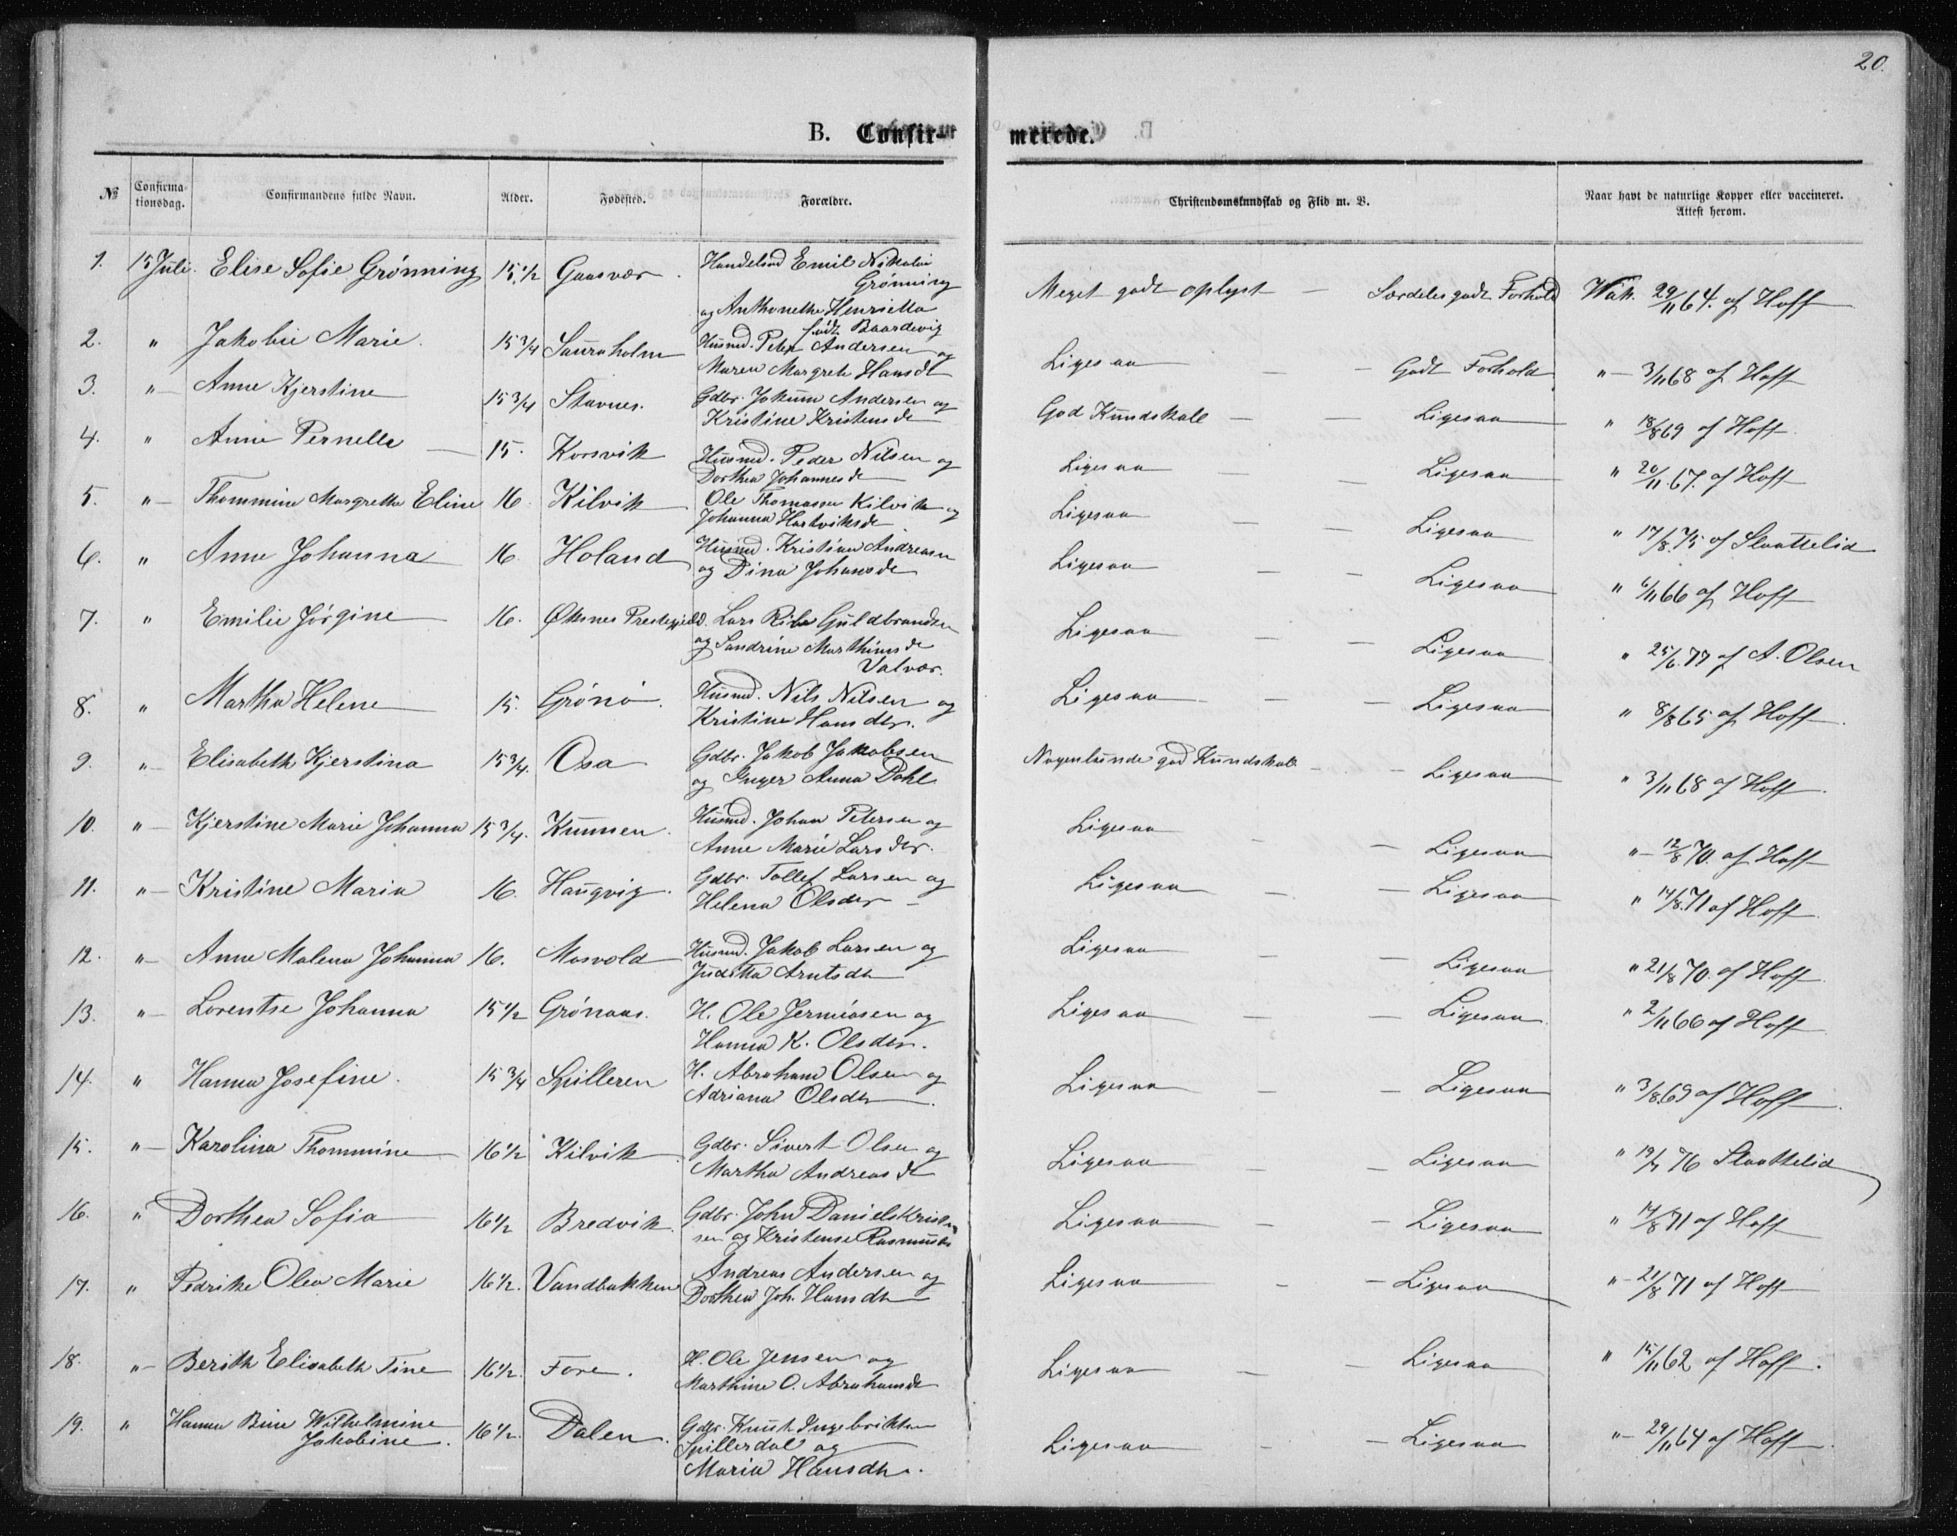 20.
B. Confir-
merede.
№ Confirma-tionsdag. Confirmandens fulde Navn. Alder. Fødested. Forældre. Christendomskundskab og Flid m. V. Naar havt de naturlige Kopper eller vaccineret. Attest herom.
1. 15 Juli. Elise Sofie Grønning 15 1/2 Gaasvær. Handelsmd Emil Nikolai
Grønning
og Anthonette Henriette
født Baardevig
Meget godt oplyst — Særdeles godt Forhold Vak. 29/11 64. af Hoff
2. " Jakobie Marie. 15 3/4 Sauraholm Husmd. Peter Andersen og
Maren Margrete Hansdt
Ligesaa — — Godt Forhold " 3/11 68 af Hoff
3. " Anne Kjerstine 15 3/4 Stavnes. Gdbr. Jakum Andersen og
Kristine Kristensdt
God Kundskab — — Ligesaa " 18/8 69 af Hoff.
4. " Anne Pernelle — 15. Korsvik Husmd. Peder Nilsen og
Dorthea Johannesd
Ligesaa — Ligesaa " 20/11 67. af Hoff
5. " Thommine Margrethe Eline 16. Kilvik Ole Thomassen Kilvik og
Johanna Hartviksd.
Ligesaa — — Ligesaa " 17/8 75 af Slaattelid
6. " Anne Johanna 16. Holand Husmd. Kristian Andreasen
og Dina Johansd
Ligesaa — — Ligesaa " 6/11 66 af Hoff
7. " Emilie Jørgine 16. Øksnes Prestegjeld. Lars Guldbrandsen
og Sandrine Marthinusd
Valvær.
Ligesaa — — Ligesaa " 25/6. 77 af A. Olsen
8. " Martha Helene 15. Grønø. Husmd. Nils Nilsen og
Kristine Hansdtr.
Ligesaa — — Ligesaa " 8/8 65 af Hoff.
9. " Elisabeth Kjerstina 15 3/4. Osa Gdbr. Jakob Jakobsen
og Inger Anna Dahl
Nogenlunde god Kundskab — — Ligesaa " 3/11 68 af Hoff.
10. " Kjerstine Marie Johanna 15 3/4. Kunnen. Husmd. Johan Petersen og
Anne Marie Larsdtr.
Ligesaa — Ligesaa " 12/8 70. af Hoff
11. " Kristine Maria 16. Haugvig. Gdbr. Tollef Larsen og
Helena Olsdtr —
Ligesaa — — Ligesaa " 14/8. 71 af Hoff.
12. " Anne Malena Johanna 16. Mosvold Husmd. Jakob Larsen og
Juditta Arntsdtr
Ligesaa — — Ligesaa " 21/8 70. af Hoff.
13. " Lorentse Johanna 15 1/2 Grønaas. H. Ole Jermiasen og
Hanna K. Olsdtr.
Ligesaa — — Ligesaa " 2/11 66 af Hoff.
14. " Hanna Josefine. 15 3/4 Spilleren H. Abraham Olsen og
Adriana Olsdtr.
Ligesaa — — Ligesaa " 3/8. 69 af Hoff.
15. " Karolina Thommine 16 1/2 Kilvik Gdbr. Sivert Olsen og
Martha Andreasd
Ligesaa — Ligesaa " 19/7 76 Slaattelid
16. " Dorthea Sofia 16 1/2 Bredvik. Gdbr. John Daniel Kristen
sen og Kristense Rasmusdtr
Ligesaa — — Ligesaa " 14/8 71 af Hoff
17. " Pedrikke Olea Marie 16 1/2. Vandbakken Andreas Andersen og
Dorthea Joh. Hansdtr
Ligesaa — — Ligesaa " 21/8 71 af Hoff
18. " Berith Elisabeth Tine 16 1/2. Fore. H. Ole Jensen og
Marthine O. Abrahamsdtr
Ligesaa — — Ligesaa " 15/11 62 af Hoff.
19. " Hanna Wilhelmine
Jakobine. 16 1/2. Dalen. Gdbr. Knut Ingebriktsen
Spillerdal og
Maria Hansdtr.
Ligesaa — — Ligesaa " 29/11 64 af Hoff.